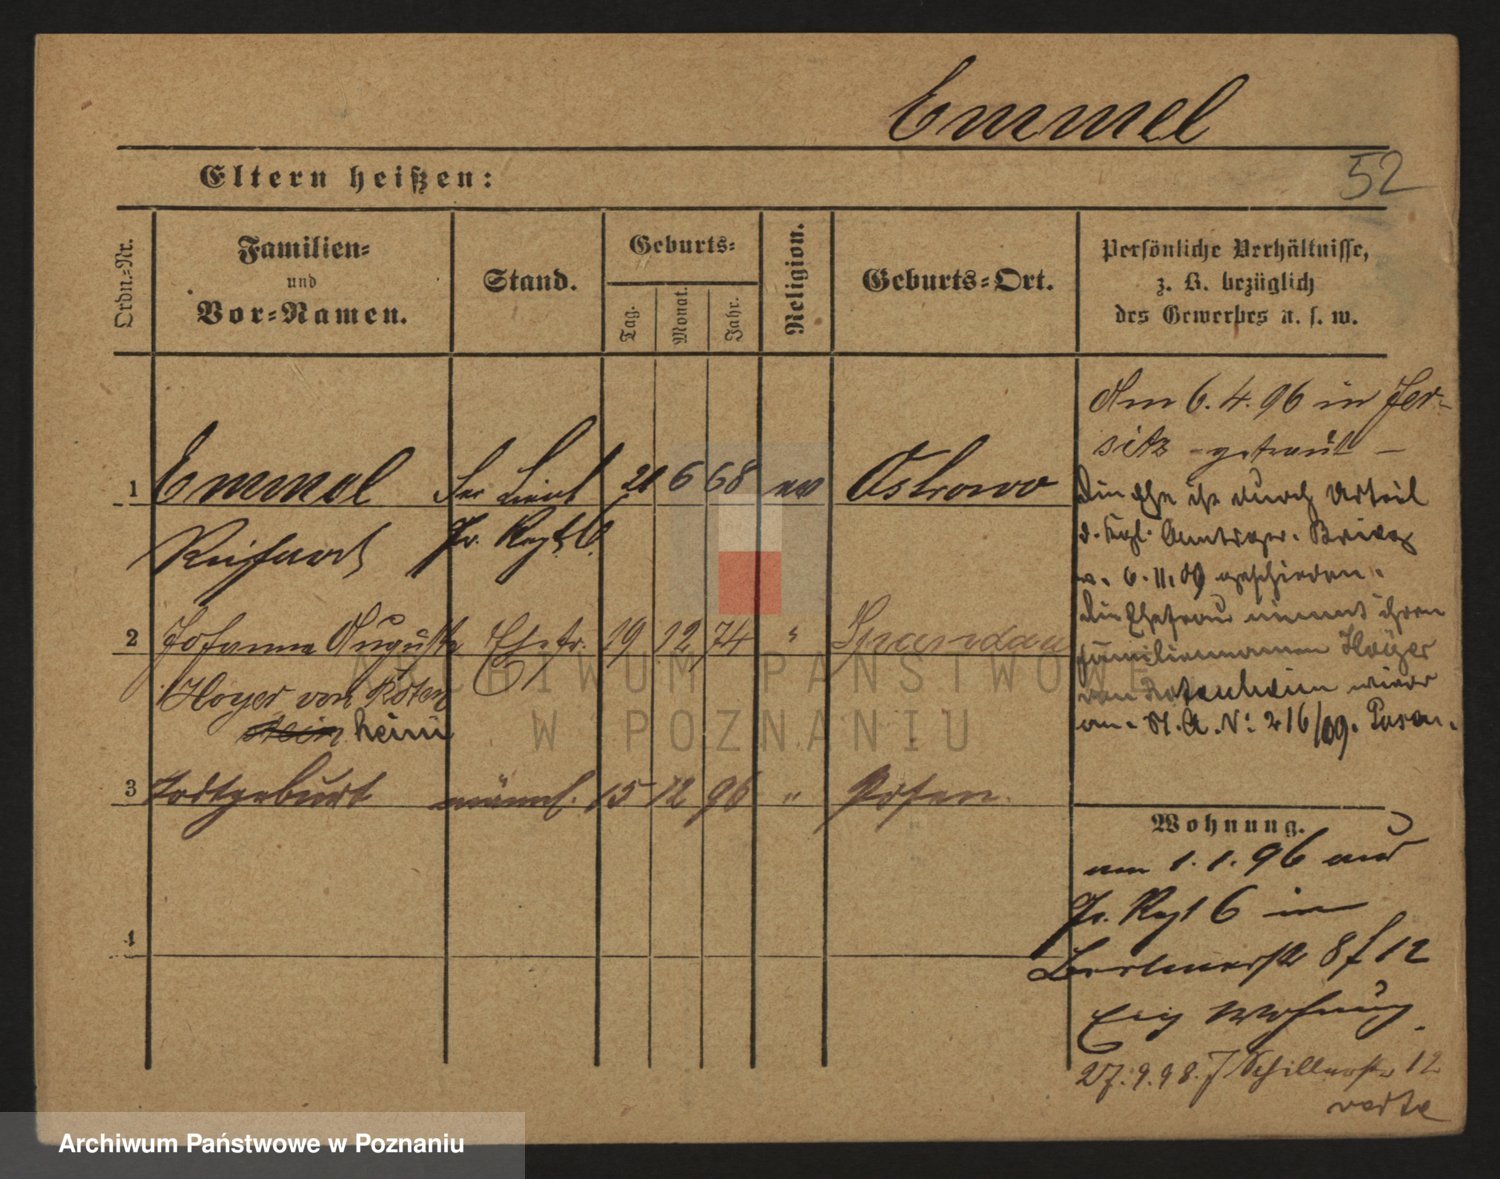 Emmel
52
Eltern heißen:
Ordn.-Nr.
Familien-
und
Vor-Namen.
Stand.
Geburts-
Tag.
Monat.
Jahr.
Religion.
Geburts-Ort.
Persönliche Verhältnisse,
z. B. bezüglich
des Gewerbes u. s. w.
1 Emmel Sec Lieut 21 6 68 ev Ostrowo
Richard Gr. Regt. 6.
2 Johanna Auguste Ehefr. 19 12 74 " Spandau
Hoyer von Roten
stein heim
3 Todtgeburt männl. 15 12 96 " Posen.
4
Am 6. 4. 96 in Jer-
sitz getraut –
Die Ehe ist durch Urteil
d. Kgl. Amtsger.
v. 6.11.09 geschieden.
Die Ehefrau nimmt ihren
Familiennamen Hoyer
von Rotenheim wieder
an. St. A. N: 216/09. Posen.
Wohnung.
am 1. 1. 96 auf
Gr. Regt 6 in
Berlinerstr 8 f 12
Eig Wohnung.
27.9.98. J Schillerstr 12
verte
ARCHIWUM PAŃSTWOWE
W POZNANIU
Archiwum Państwowe w Poznaniu